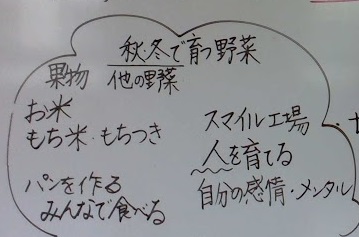 秋・冬で育つ野菜
果物 他の野菜
お米
もち米・もちつき
パンを作る
みんなで食べる
スマイル工場
人を育てる
自分の感情・メンタル